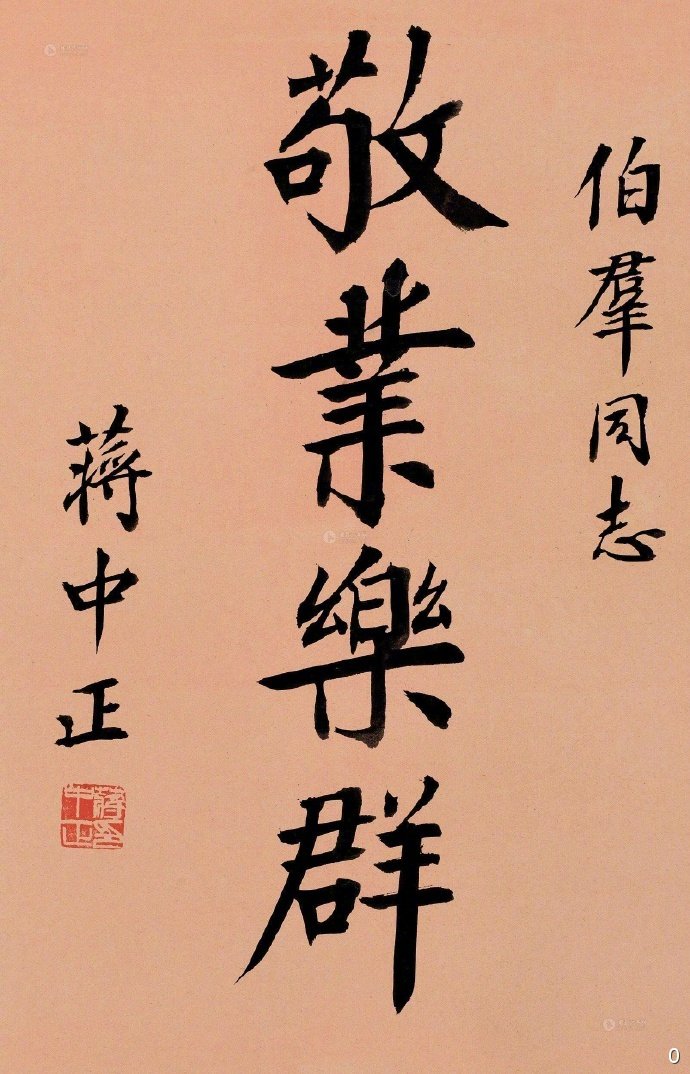 伯羣同志
敬業樂群
蔣中正
蔣中正印
0